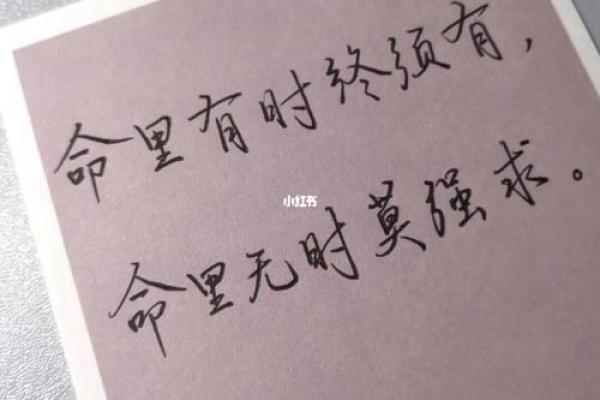 命里有时终须有，
小红书
命里无时莫强求。